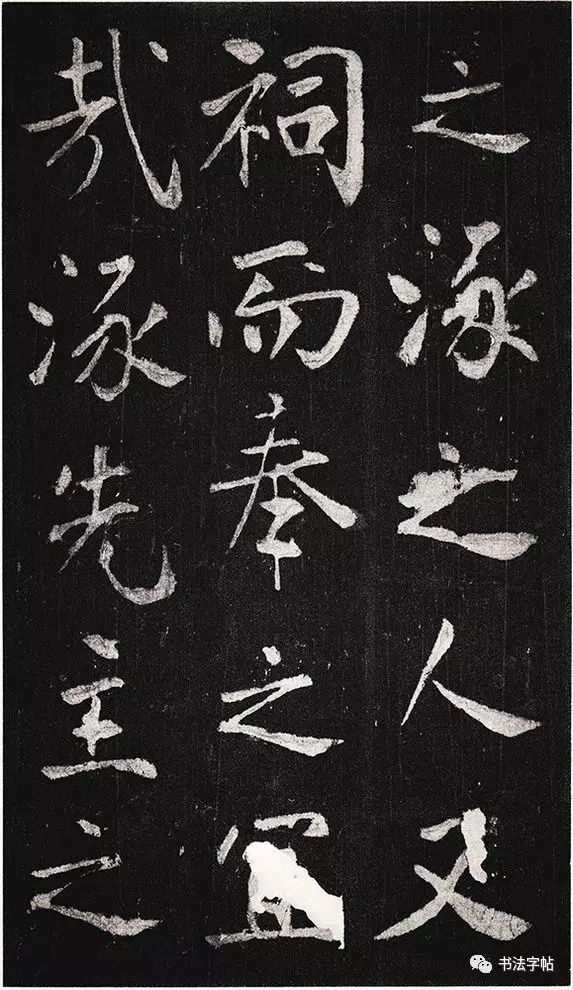 之涿之人又
祠而奉之宜
哉涿先主之
书法字帖